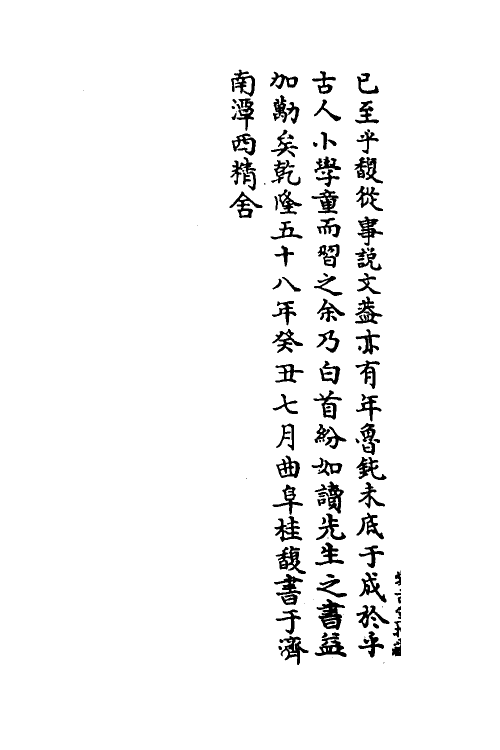 已至乎馥從事說文葢亦有年魯鈍未底于成於乎
古人小學童而習之余乃白首紛如讀先生之書益
加勱矣乾隆五十八年癸丑七月曲阜桂馥書于濟
南潭西精舍